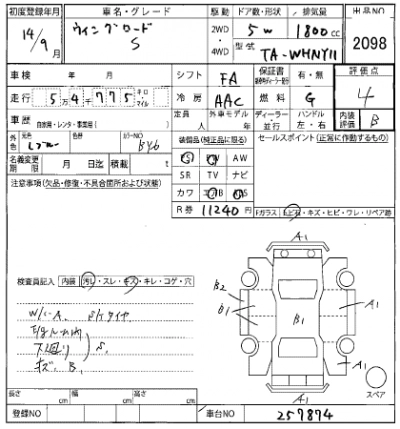 初度登録年月 車名・グレード 駆動 ドア数/形状 排気量 出品NO
14/9月 ウィングロード S 2WD 4WD 5W 1800cc 2098
型式 TA-WHNY11
車検 年 月 シフト FA 保証書 有・無 評価点
走行 54775 キロ・マイル 冷房 AAC 燃料 G 4
車歴 自家用・レンタ・事業用( ) 定員 人 外車モデル 年 ディーラー・並行 ハンドル 左・右 内装評価 B
外色 元色 色替 カラーNO BY6 装備品(純正品に限る) セールスポイント(正常に作動するもの)
名義変更期限 月 日迄 積載 t PS PW AW
注意事項(欠品・修復・不具合箇所および状態) SR TV ナビ
カワ エアB ABS
R券 11240円 Fガラス
トビ石・キズ・ヒビ・ワレ・リペア跡
A1
検査員記入 内装 汚れ・スレ・キズ・キレ・コゲ・穴
B2 B1 B1 A1
W/C-A. S/Tタイヤ
S.
キズ B, A1
A1 スペア
長さ cm 幅 cm 高さ cm
登録NO 車台NO 257874